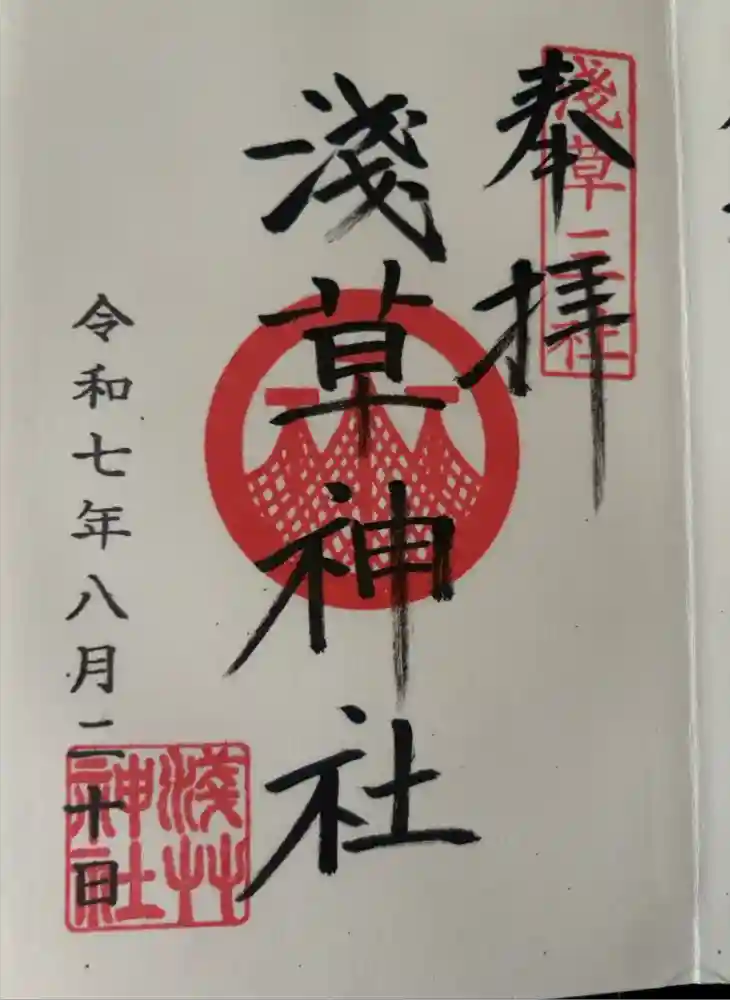 奉拝
淺草三社
淺草神社
令和七年八月二十日
淺艸神社